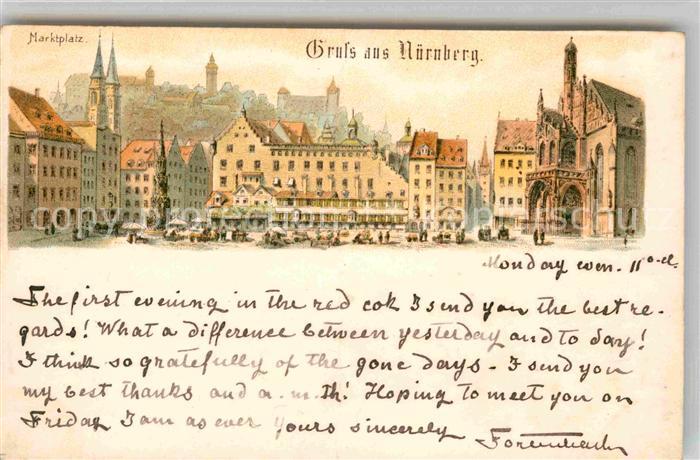 Marktplatz.
Gruss aus Nürnberg.
Monday even. 11 o.cl.
The first evening in the red cok I send you the best re-
gards! What a difference between yesterday and to day!
I think so gratefully of the gone days. I send you
my best thanks and a. m. th! Hoping to meet you on
Friday I am as ever yours sincerely